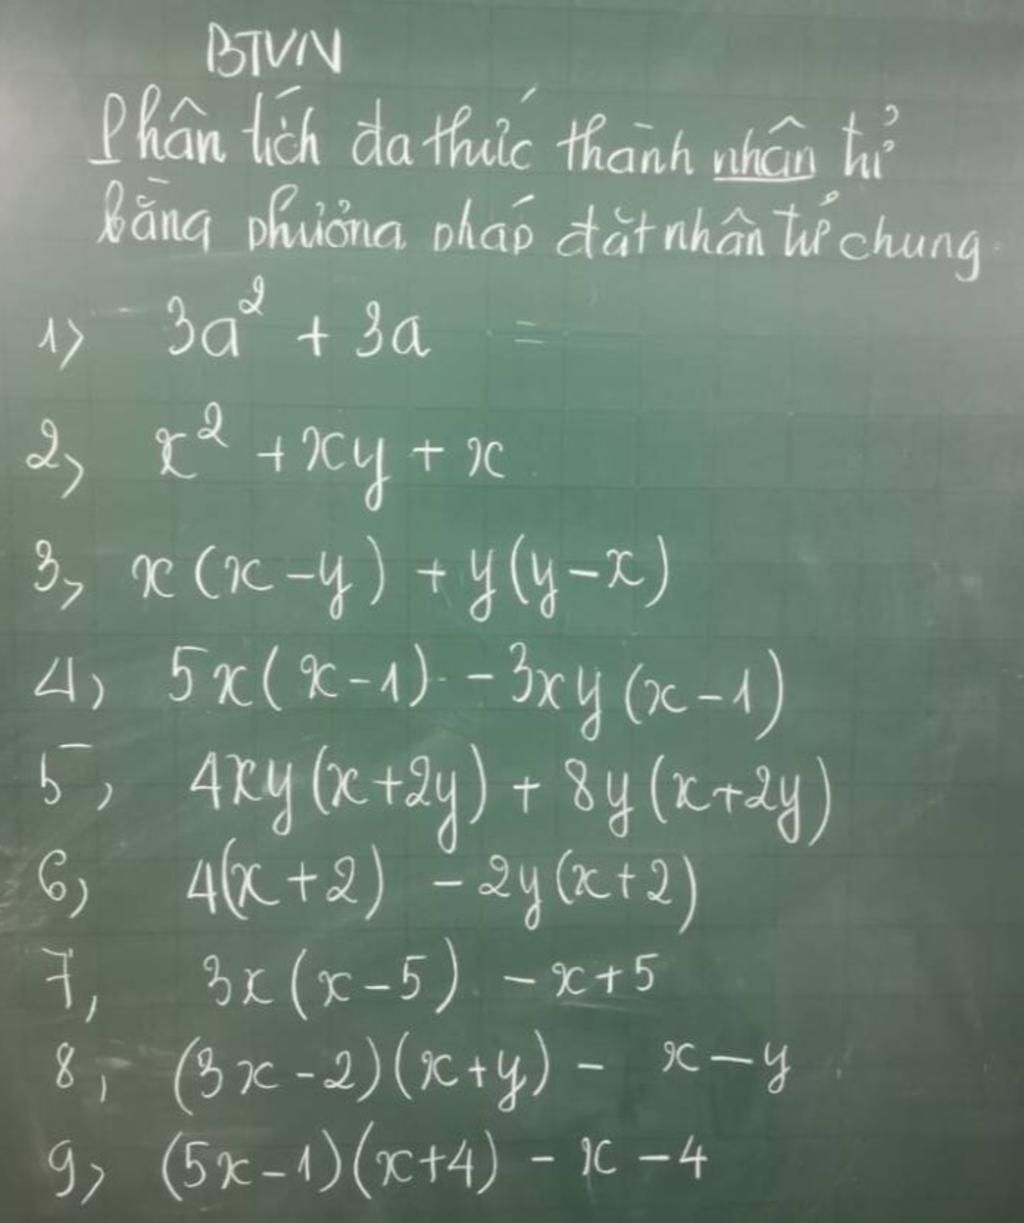 BTVN
Phân tích đa thức thành nhân tử
bằng phương pháp đặt nhân tử chung.
1) 3a² + 3a =
2) x² + xy + x
3) x(x-y) + y(y-x)
4) 5x(x-1) - 3xy(x-1)
5, 4xy(x+2y) + 8y(x+2y)
6) 4(x+2) - 2y(x+2)
7, 3x(x-5) - x+5
8, (3x-2)(x+y) - x-y
9) (5x-1)(x+4) - x-4